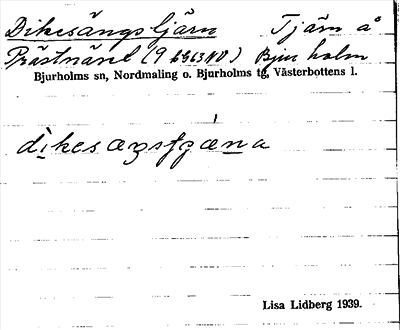 Dikesängstjärn Tjärn å
Prästnäset (9 bg63NV) Bjurholm
Bjurholms sn, Nordmaling o. Bjurholms tg, Västerbottens l.
dikesæŋstjæṇa
Lisa Lidberg 1939.